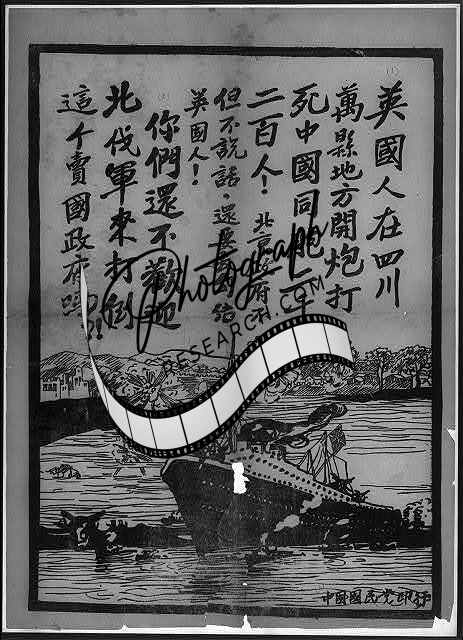 英國人在四川
萬縣地方開炮打
死中國同胞一
二百人！北京政府不
但不說話，還要給
英國人！
你們還不歡迎
北伐軍來打倒
這个賣國政府嗎?!
中國國民党印
Photograph
RESEARCH.COM